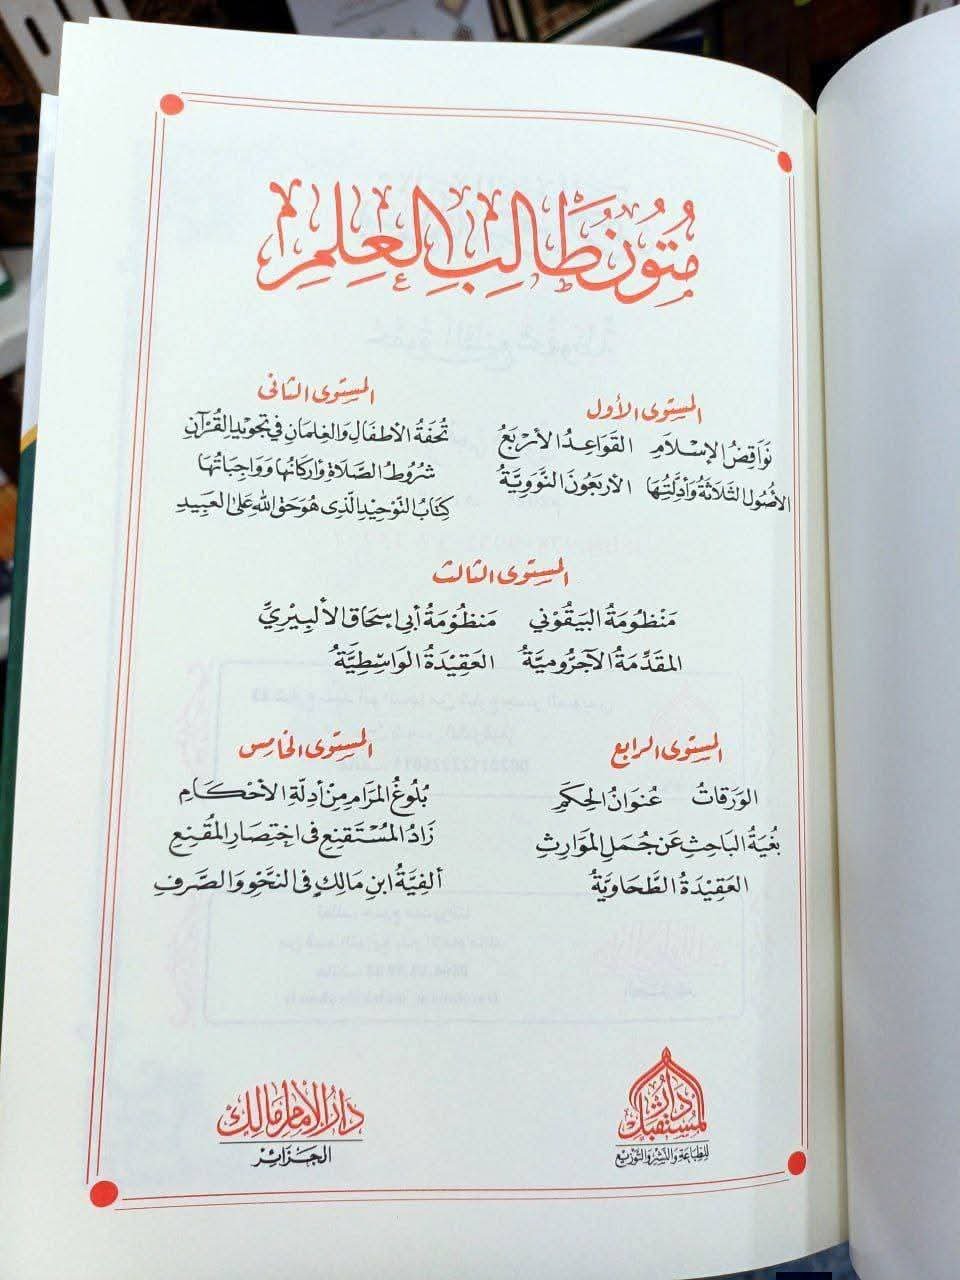 مُتُونُ طَالِبِ العِلمِ
المستوى الأول
نَوَاقِضُ الإِسْلَامِ القَوَاعِدُ الأَربَعُ
الأُصُولُ الثَّلَاثَةُ وَأَدِلَّتُهَا الأَربَعُونَ النَّوَوِيَّةُ
المستوى الثانى
تُحفَةُ الأَطفَالِ وَالغِلمَانِ فِي تَجوِيدِ القُرآنِ
شُرُوطُ الصَّلَاةِ وَأَركَانُهَا وَوَاجِبَاتُهَا
كِتَابُ التَّوحِيدِ الَّذِى هُوَ حَقُّ اللهِ عَلَى العَبِيدِ
المستوى الثالث
مَنْظُومَةُ البَيقُوْنِي مَنظُوْمَةُ أَبِي إِسحَاقَ الأَلبِيْرِيِّ
المقَدِّمَةُ الآجُرُّومِيَّةُ العَقِيْدَةُ الوَاسِطِيَّةُ
المستوى الرابع
الوَرَقَاتُ عُنوَانُ الحِكَمِ
بُغْيَةُ البَاحِثِ عَن جُمَلِ المَوَارِثِ
العَقِيْدَةُ الطَّحَاوِيَّةُ
المستوى الخامس
بُلُوغُ المَرَامِ مِنْ أَدِلَّةِ الأَحْكَامِ
زَادُ المُسْتَقنِعِ فِى اختِصَارِ المُقْنِعِ
أَلفِيَّةُ ابنِ مَالِكٍ فِى النَّحْوِ وَالصَّرفِ
دَارُ المُستَقبَل
للطِّبَاعَةِ وَالنَّشرِ وَالتَّوْزِيْعِ
دَارُ الإِمَامِ مَالِك
الجَزَائِر